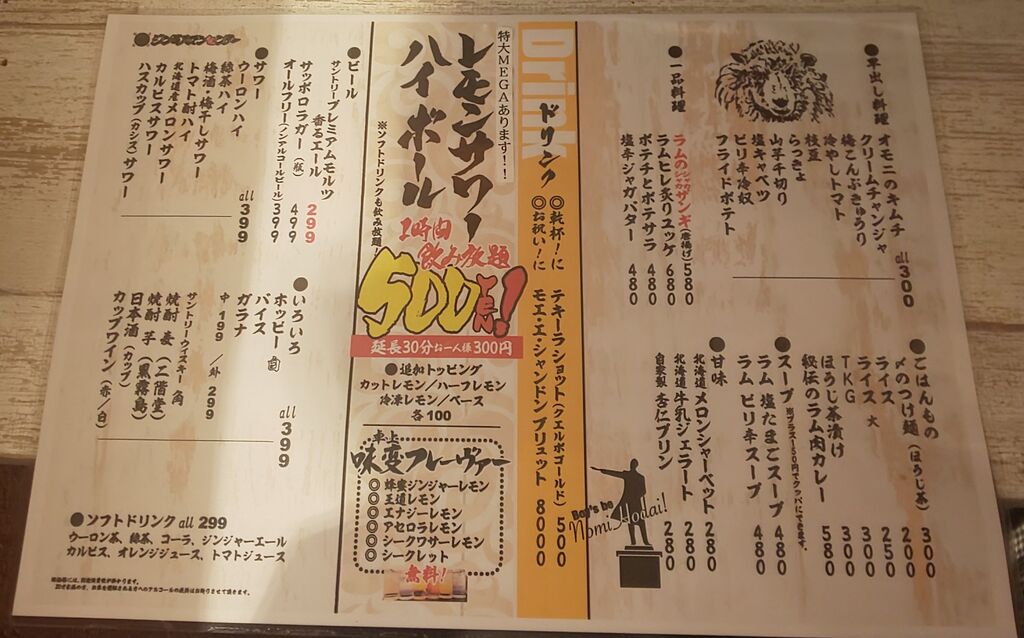 ●早出し料理
オモニのキムチ
クリームチャンジャ
梅こんぶきゅうり
冷やしトマト
枝豆
らっきょ
山芋千切り
塩キャベツ
ピリ辛冷奴
フライドポテト
all 300
●一品料理
ラムのジュージューザンギ(唐揚げ) 580
ラムヒレ炙りユッケ 680
ポテチとポテサラ 480
塩辛ジャガバター 480
●ごはんもの
〆のつけ麺(ほうじ茶) 300
ライス 200
ライス 大 250
TKG 300
ほうじ茶漬け 300
秘伝のラム肉カレー 580
●スープ ※プラス150円でクッパにできます。
ラム塩たまごスープ 480
ラムピリ辛スープ 480
●甘味
北海道メロンシャーベット 280
北海道牛乳ジェラート 280
自家製 杏仁プリン 280
Boy's be
Nomi Hodai!
Drink
ドリンク
◎乾杯!に テキーラショット(クエルボゴールド) 500
◎お祝い!に モエ・エ・シャンドンブリュット 8000
特大MEGAあります!!
レモンサワー
ハイボール
※ソフトドリンクも飲み放題!
1時間
飲み放題
500YEN!
延長30分お一人様300円
●追加トッピング
カットレモン/ハーフレモン
冷凍レモン/ベース
各100
卓上
味変フレーヴァー
◎蜂蜜ジンジャーレモン
◎王道レモン
◎エナジーレモン
◎アセロラレモン
◎シークワサーレモン
◎シークレット
無料!
●ビール
サントリープレミアムモルツ
香るエール 299
サッポロラガー(瓶) 499
オールフリー(ノンアルコールビール) 399
●サワー
ウーロンハイ
緑茶ハイ
梅酒・梅干しサワー
トマト酎ハイ
北海道産メロンサワー
カルピスサワー
ハスカップ(カシス)サワー
all 399
●いろいろ
ホッピー 白
バイス
ガラナ
中 199/外 299
サントリーウイスキー 角
焼酎 麦(二階堂)
焼酎 芋(黒霧島)
日本酒(カップ)
カップワイン(赤/白)
all 399
●ソフトドリンク all 299
ウーロン茶、緑茶、コーラ、ジンジャーエール
カルピス、オレンジジュース、トマトジュース